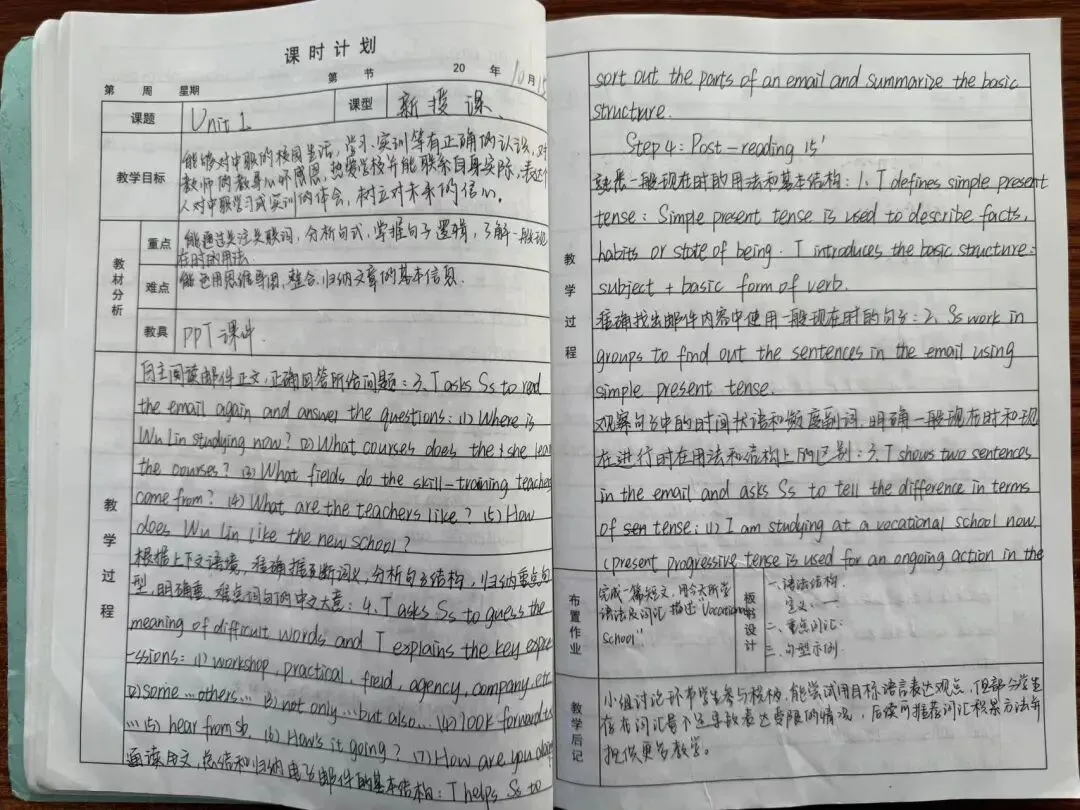 课时计划
第 周 星期 第 节 20 年 10月15
课题 Unit 1 课型 新授课
教学目标
能够对中职的校园生活,学习、实训等有正确的认识,对
教师的教导心怀感恩,热爱学校并能联系自身实际,表达个
人对中职学习或实训的体会,树立对未来的信心。
教材分析
重点
能通过关注关联词,分析句式,掌握句子逻辑,了解一般现
在时的用法
难点
能运用思维导图,整合、归纳文章的基本信息.
教具 PPT 课件
教学过程
自主阅读邮件正文,正确回答所给问题:3. T asks Ss to read
the email again and answer the questions: (1) Where is
Wu Lin studying now? (2) What courses does the she lear
the courses? (3) What fields do the skill-training teache
come from? (4) What are the teachers like? (5) How
does Wu Lin like the new school?
根据上下文语境,准确推断词义,分析句子结构,归纳重点句
型,明确重、难点词句的中文大意:4. T asks Ss to guess the
meaning of difficult words and T explains the key expre
-ssions: (1) workshop, practical, freid, agency, company, etc
(2) some ... others... (3) not only ... but also... (4) look forward to
... (5) hear from sb. (6) How's it going? (7) How are you doing
通读全文,总结和归纳电子邮件的基本结构:T helps Ss to
sort out the parts of an email and summarize the basic
structure.
Step 4: Post-reading 15'
一般现在时的用法和基本结构:1. T defines simple present
tense: Simple present tense is used to describe facts,
habits or state of being. T introduces the basic structure:
subject + basic form of verb.
准确找出邮件内容中使用一般现在时的句子:2. Ss work in
groups to find out the sentences in the email using
simple present tense.
观察句子中的时间状语和频度副词,明确一般现在时和现
在进行时在用法和结构上的区别:3. T shows two sentences
in the email and asks Ss to tell the difference in terms
of sen tense: (1) I am studying at a vocational school now.
(present progressive tense is used for an ongoing action in the
教学过程
布置作业
完成一篇短文,用今天所学
语法及词汇描述"Vocational
School"
板书设计
一、语法结构.
定义:—
二、重点词汇:
三、句型示例.
教学后记
小组讨论环节学生参与积极,能尝试用目标语言表达观点,但部分学生
存在词汇量不足导致表达受限的情况,后续可推荐词汇积累方法并
提供更多教学。